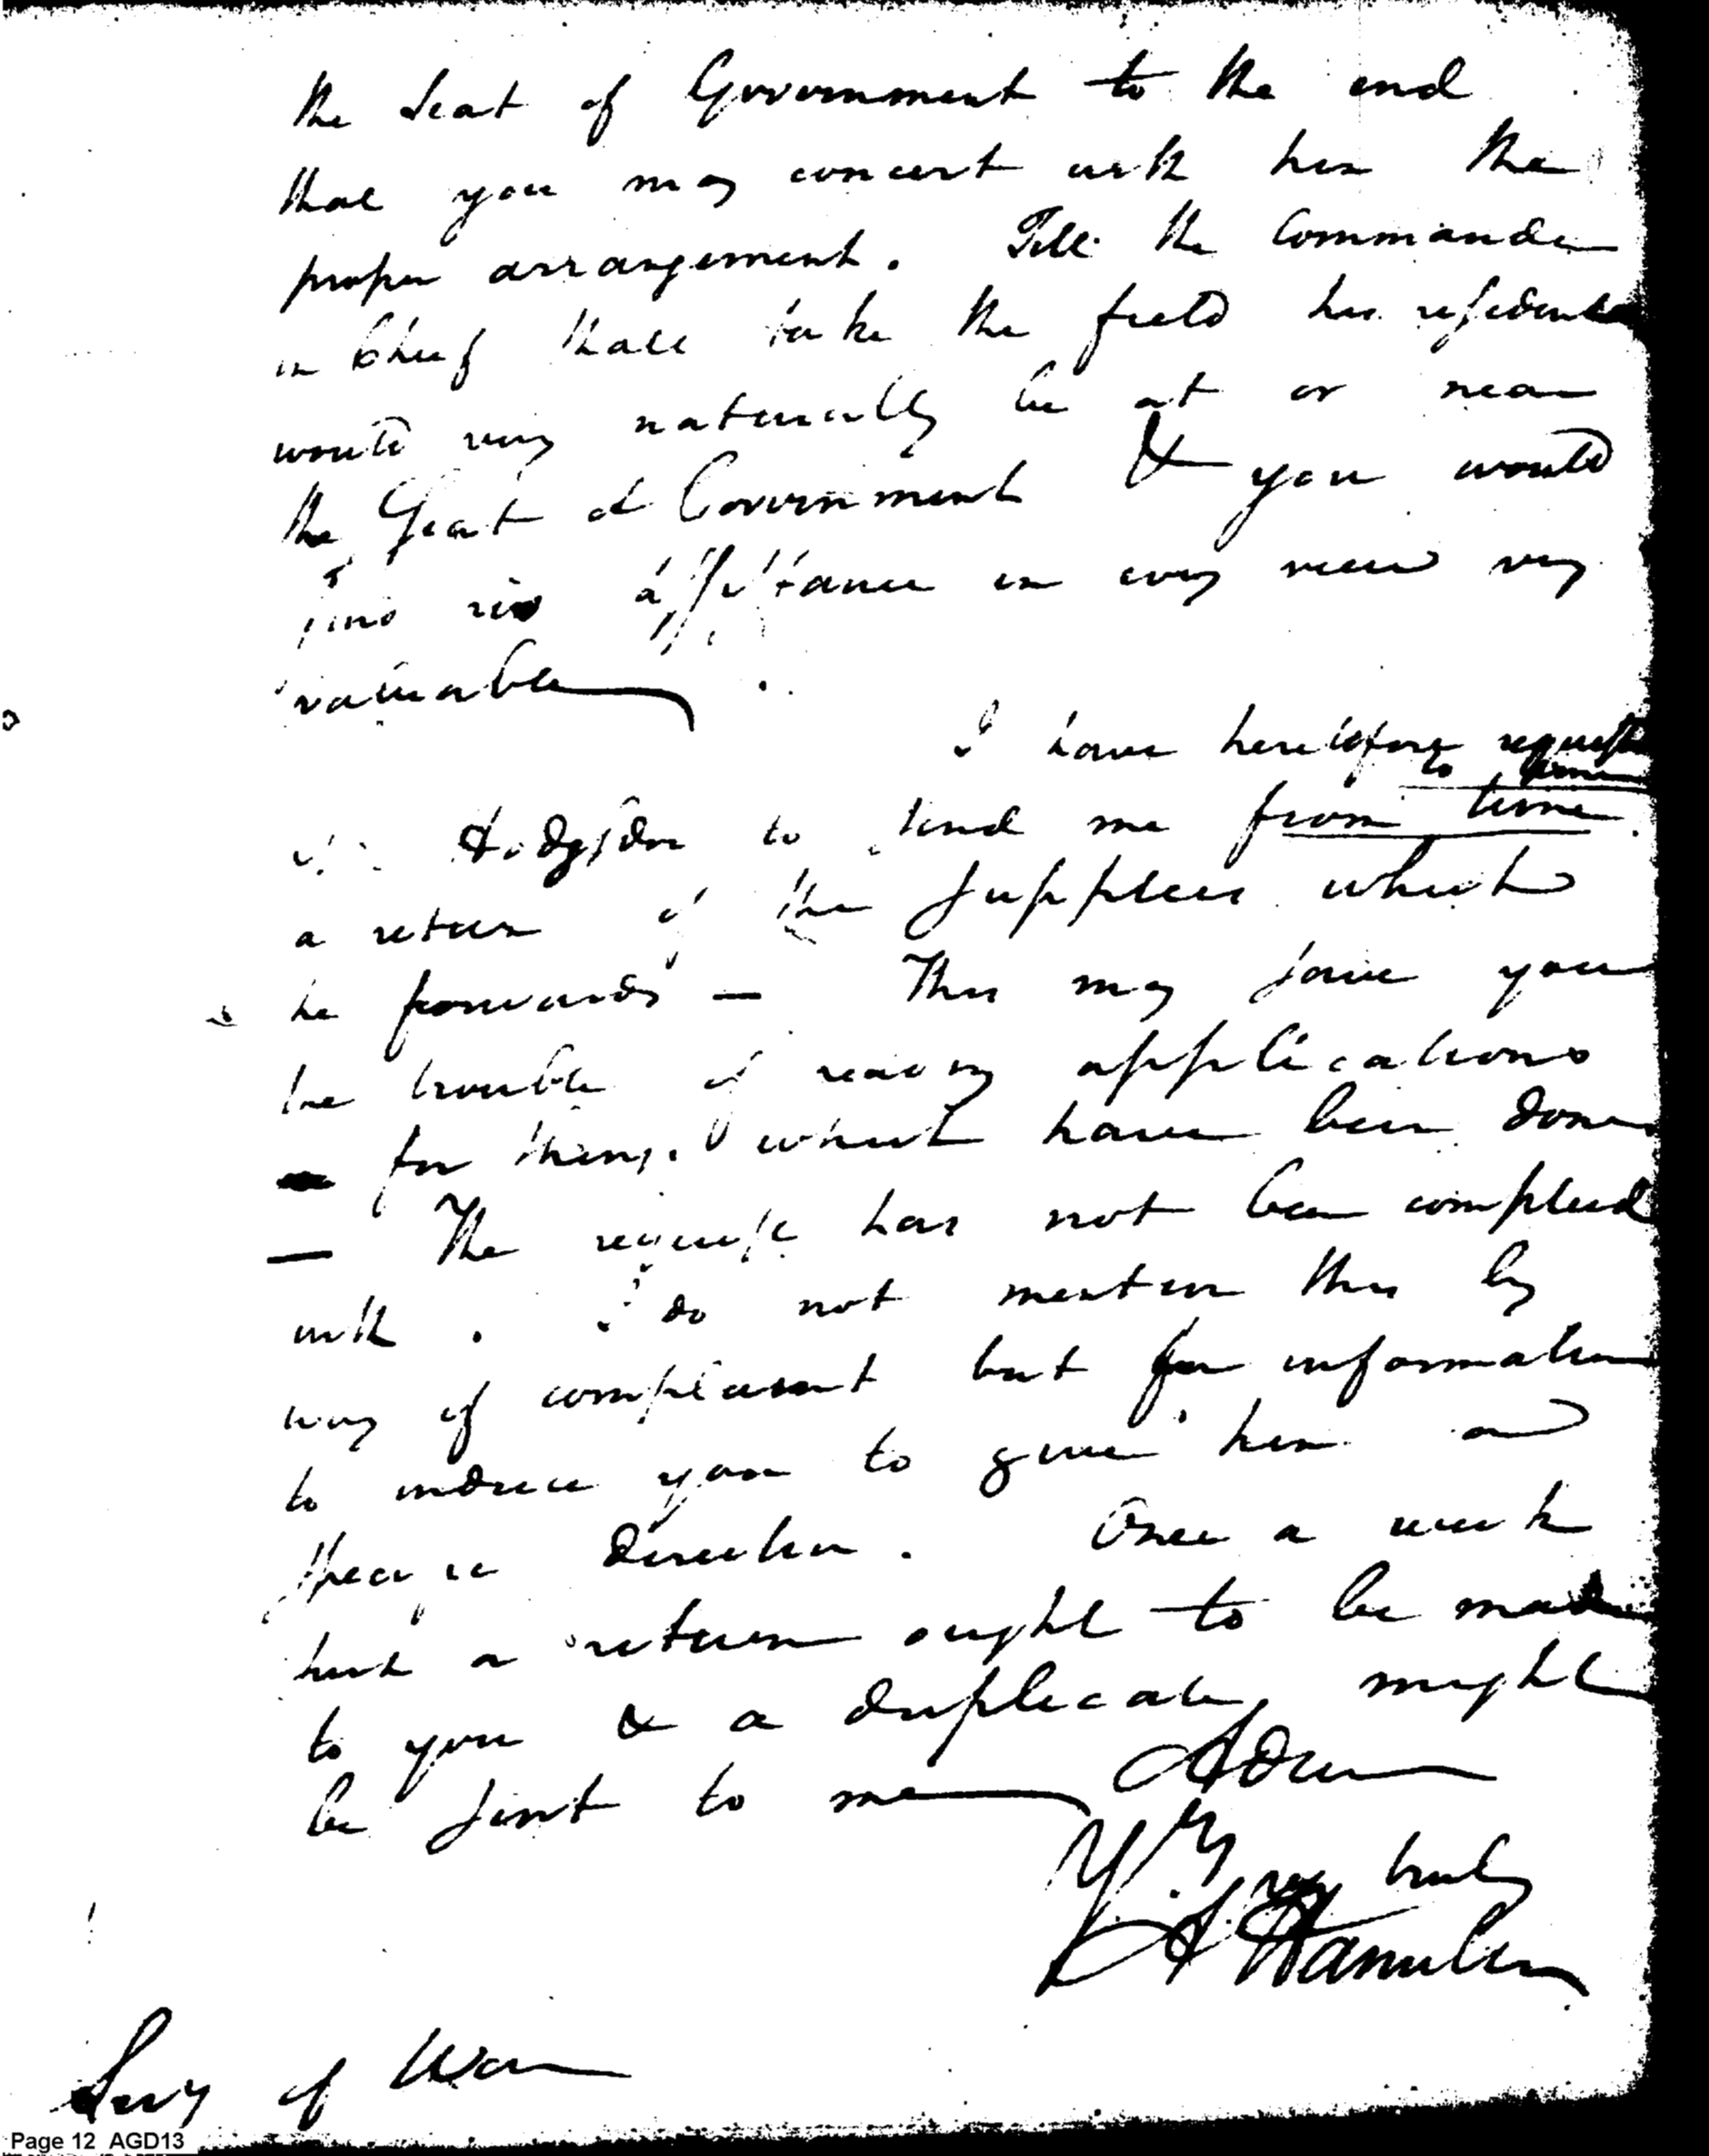 the Seat of Government to the end
that you may concert with him the
proper arrangement. Till the Commander
in Chief shall take the field his residence
would very naturally be at or near
the Seat of Government & you would
find his assistance in every view very
valuable.
I have heretofore request
to time
Hodgsdon to send me from time
a return of the supplies which
he forwards — This may save you
the trouble of reading applications
for things which have been done
— The request has not been complied
with. I do not mention this by
way of complaint but for information
to induce you to give him a
special direction. Once a week
such a return ought to be made
to you & a duplicate might
be sent to me Adieu
Yrs. very truly
A Hamilton
Secy of War
Page 12 AGD13